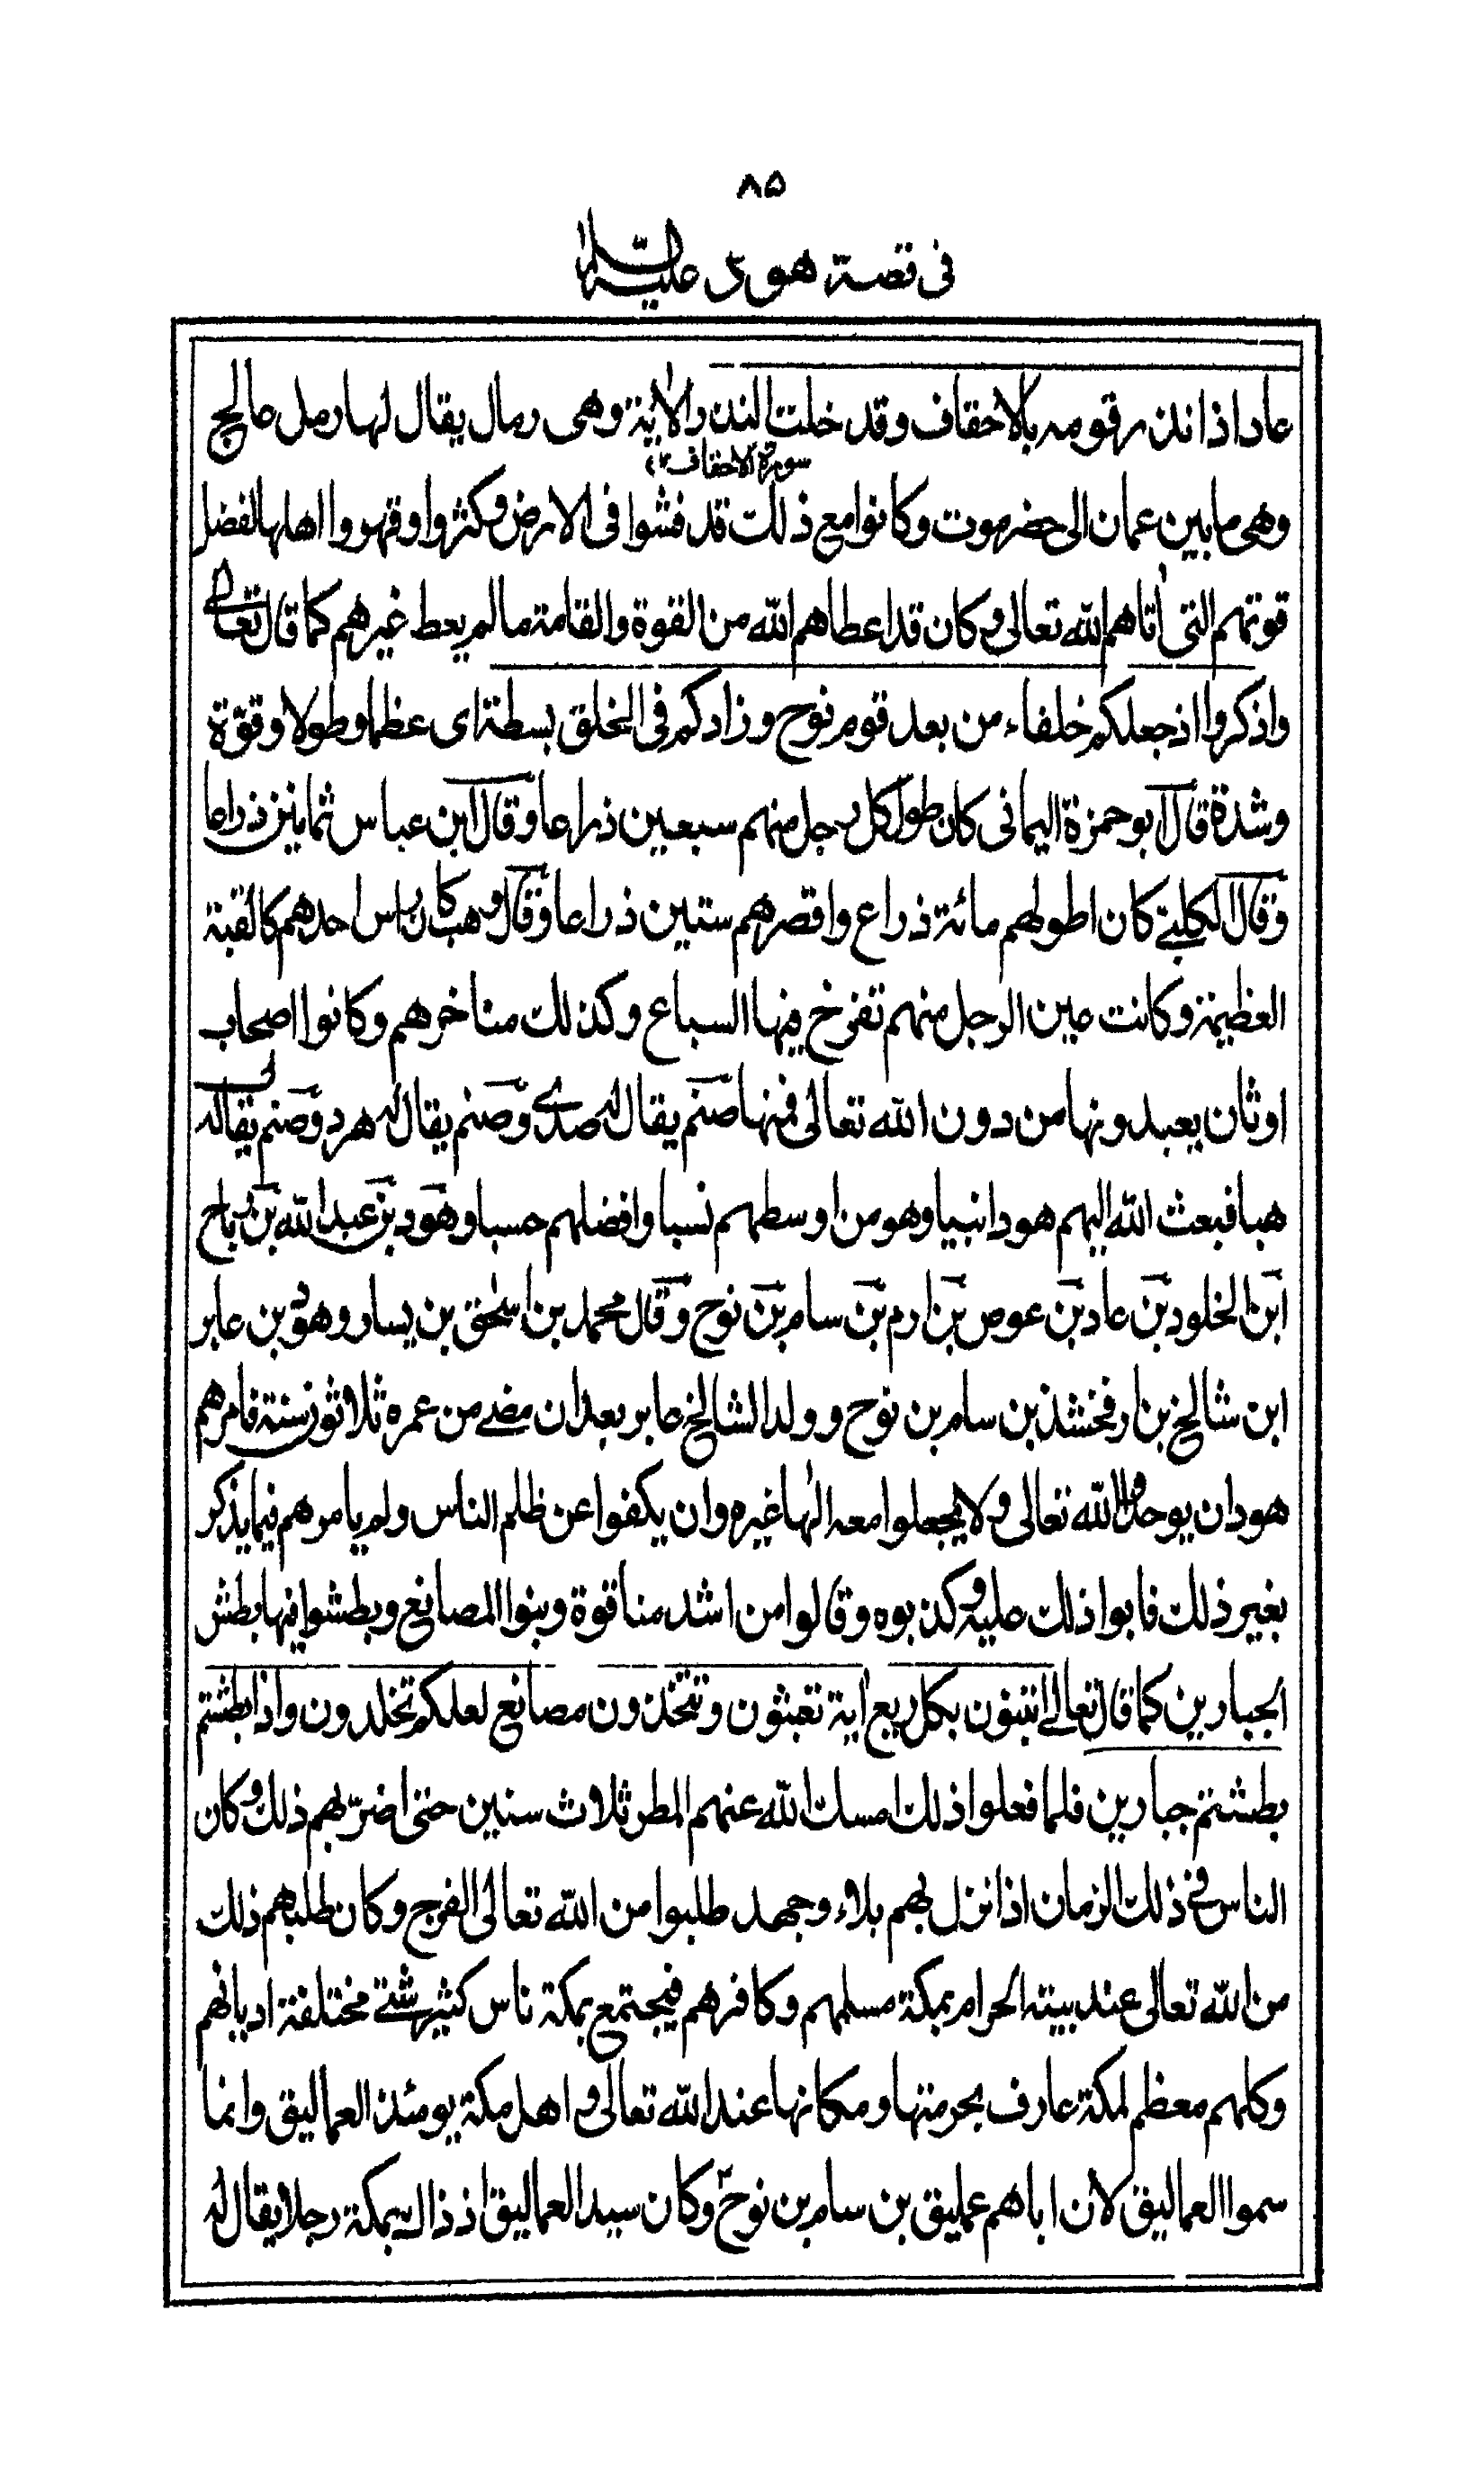 ۸۵
فی قصة هود علیه السلام
عاد اذ انذر قومه بالاحقاف وقد خلت النذر الاٰیة وهی رمال یقال لها رمل عالج
سورة الاحقاف
وهی ما بین عمان الی حضرموت وكانوا مع ذلك قد فشوا فی الارض وكثروا وقهروا اهلها لفضل
قوتهم التی اٰتاهم الله تعالی وكان قد اعطاهم الله من القوة والقامة ما لم یعط غیرهم كما قال تعالٰی
واذكروا اذ جعلكم خلفاء من بعد قوم نوح وزادكم فی الخلق بسطة ای عظما وطولا وقوّة
وشدة قال ابو حمزة الیمانی كان طول كل رجل منهم سبعین ذراعا وقال ابن عباس ثمانین ذراعا
وقال الكلبی كان اطولهم مائة ذراع واقصرهم ستین ذراعا وقال وهب كان راس احدهم كالقبة
العظیمة وكانت عین الرجل منهم تفرخ فیها السباع وكذلك مناخرهم وكانوا اصحاب
اوثان یعبدونها من دون الله تعالی فمنها صنم یقال له صدٰی وصنم یقال له هرد وصنم یقال له
هبا فبعث الله الیهم هودا نبیا وهو من اوسطهم نسبا وافضلهم حسبا وهود بن عبد الله بن رباح
ابن الخلود بن عاد بن عوص بن ارم بن سام بن نوح وقال محمد بن اسحٰق بن یسار وهو هود بن عابر
ابن شالخ بن ارفخشذ بن سام بن نوح وولد الشالخ عابر بعد ان مضی من عمره ثلاثون سنة فامرهم
هود ان یوحدوا الله تعالی ولا یجعلوا معه الٰها غیره وان یكفوا عن ظلم الناس ولم یامرهم فیما یذكر
بغیر ذلك فابوا ذلك علیه وكذبوه وقالوا من اشد منا قوة وبنوا المصانع وبطشوا فیها بطش
الجبارین كما قال تعالی اتبنون بكل ریع اٰیة تعبثون وتتخذون مصانع لعلكم تخلدون واذا بطشتم
بطشتم جبارین فلما فعلوا ذلك امسك الله عنهم المطر ثلاث سنین حتی اضرّ بهم ذلك وكان
الناس فی ذلك الزمان اذا نزل بهم بلاء وجهد طلبوا من الله تعالی الفرج وكان طلبهم ذلك
من الله تعالی عند بیته الحرام بمكة مسلمهم وكافرهم فیجتمع بمكة ناس كثیر شتی مختلفة ادیانهم
وكلهم معظم لمكة عارف بحرمتها ومكانها عند الله تعالی واهل مكة یومئذ العمالیق وانما
سموا العمالیق لان اباهم عملیق بن سام بن نوح وكان سید العمالیق اذ ذاك بمكة رجلا یقال له